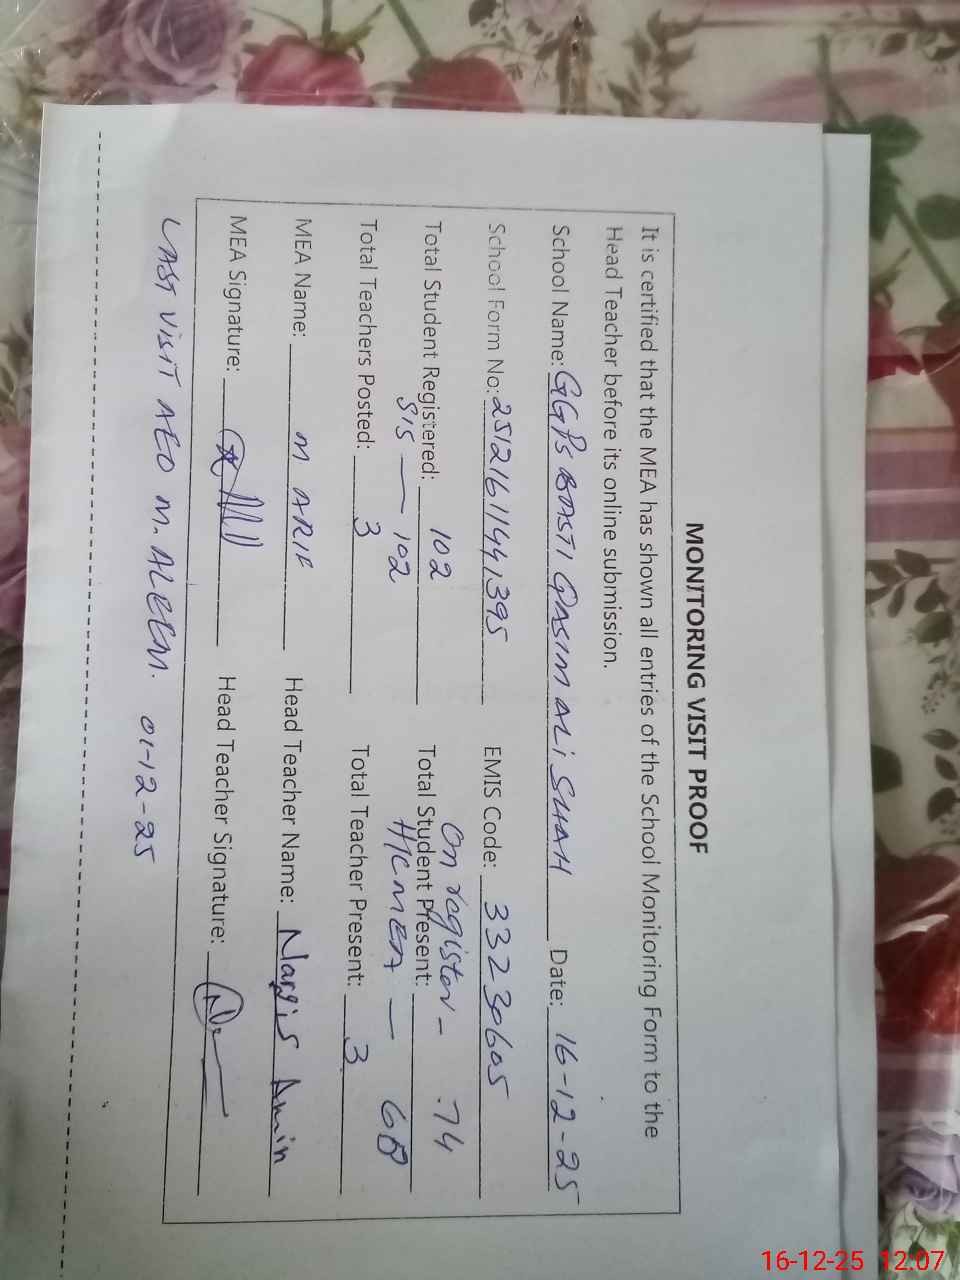 MONITORING VISIT PROOF
It is certified that the MEA has shown all entries of the School Monitoring Form to the
Head Teacher before its online submission.
School Name: GGPS BASTI QASIM ALI SHAH Date: 16-12-25
School Form No: 25121611441395 EMIS Code: 33230605
On register - 74
Total Student Registered: 102 Total Student Present:
SIS — 102 H/C MEA — 68
Total Teachers Posted: 3 Total Teacher Present: 3
MEA Name: M. ARIF Head Teacher Name: Nargis Amin
MEA Signature: Head Teacher Signature:
LAST VISIT AEO M. ALEEM. 01-12-25
16-12-25 12:07